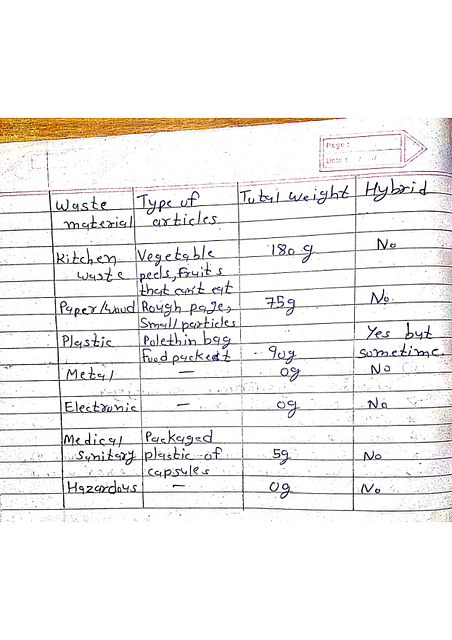 Page:
Date: / /
Waste Type of Total weight Hybrid
material articles
Kitchen Vegetable 180 g No
waste peels, fruits
that can't eat
Paper/wood Rough page, 75g No.
Small particles
Plastic Polethin bag Yes but
Food packedt 90g sometime.
Metal — 0g No
Electronic — 0g No
Medical Packaged
Sanitary plastic of 5g No
capsules
Hazardous — 0g No